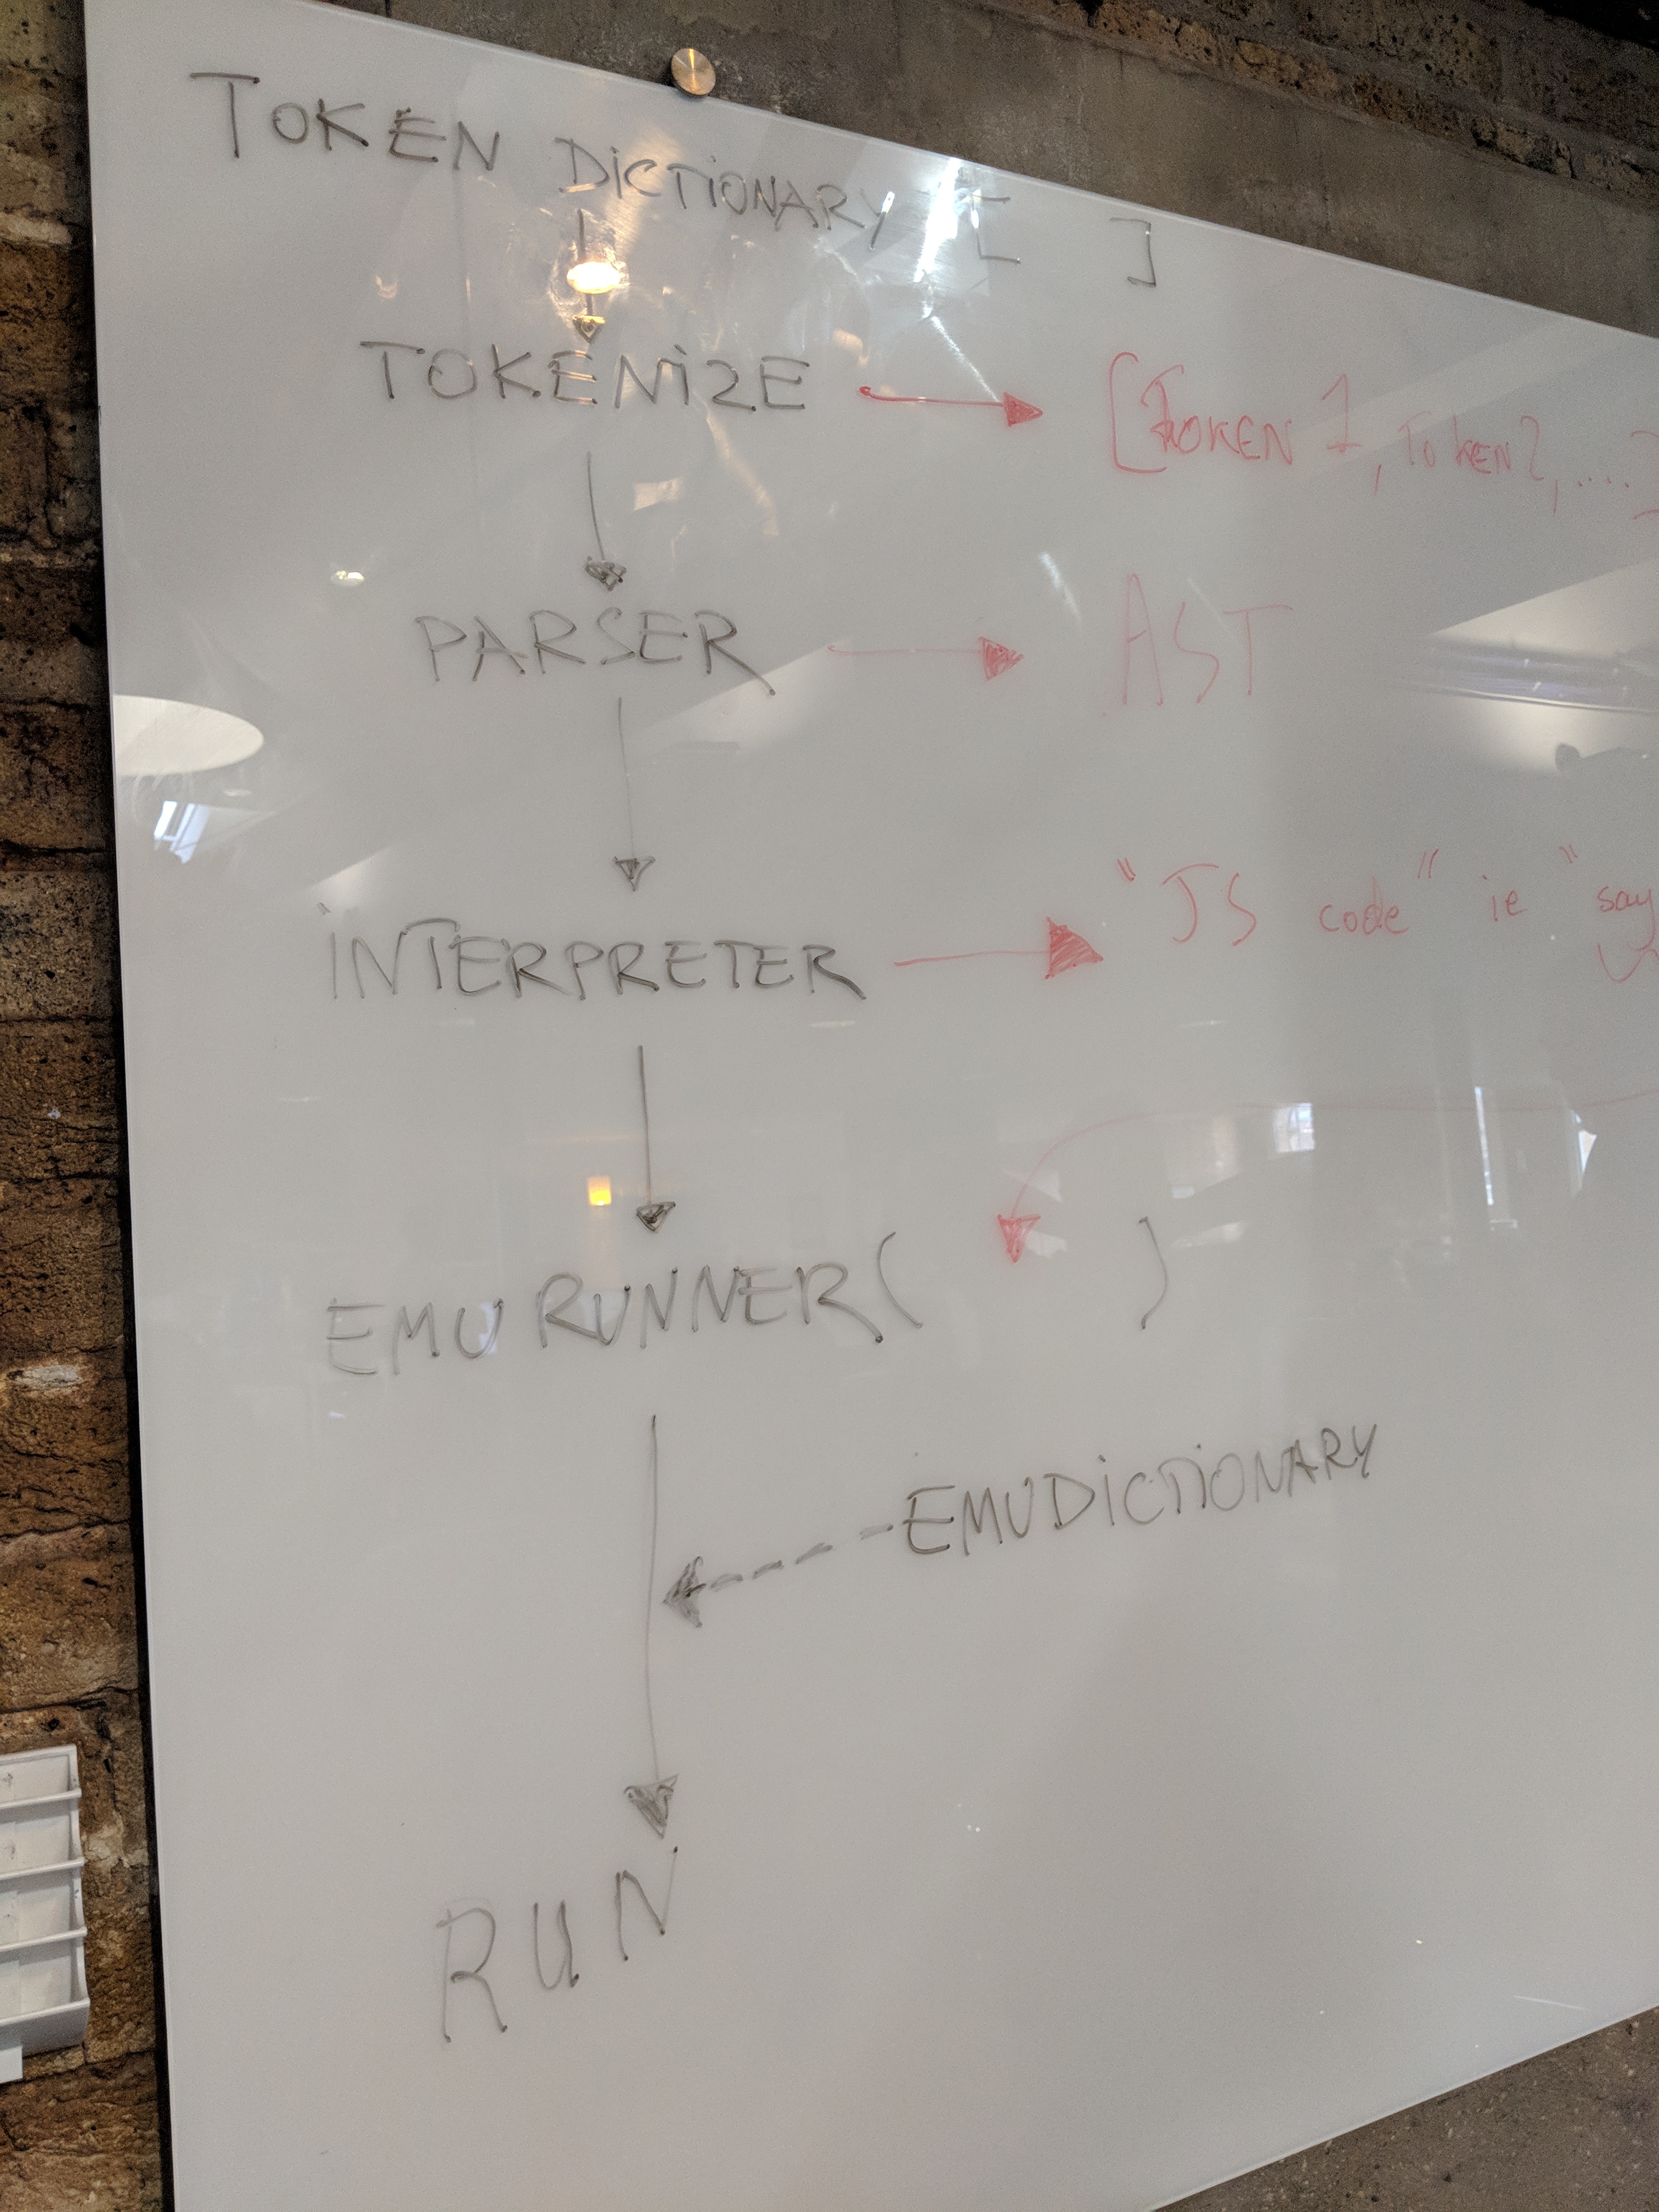 TOKEN DICTIONARY [ ]
TOKENIZE
[TOKEN 1, TOKEN2, ....]
PARSER
AST
INTERPRETER
"JS code" ie "say
EMU RUNNER( )
EMUDICTIONARY
RUN